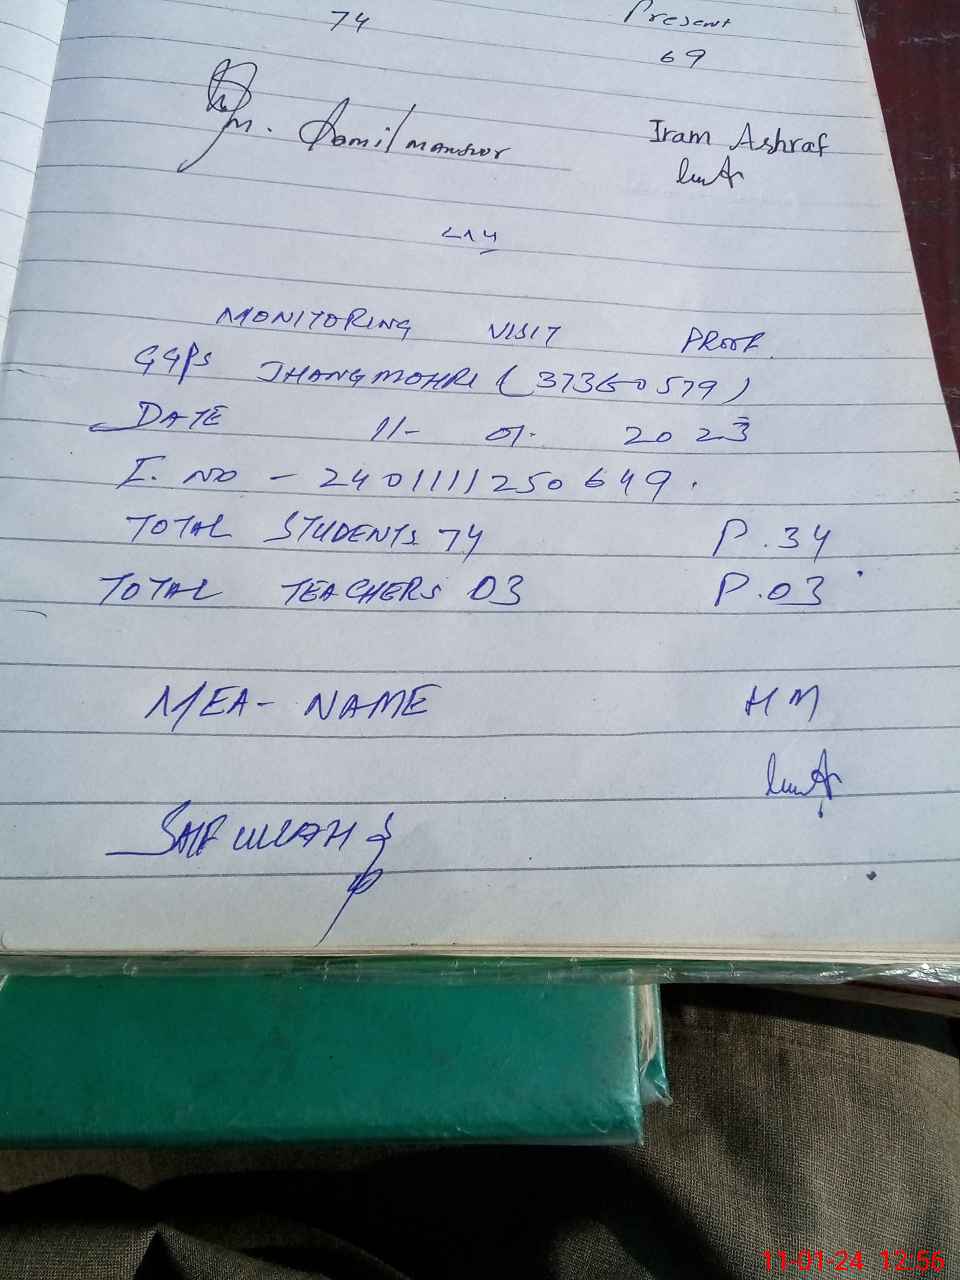 74 Present
69
Iram Ashraf
MONITORING VISIT PROOF.
GGPS JHANGMOHRI (37360579)
DATE 11- 01- 2023
I. NO - 2401111250649.
TOTAL STUDENTS 74 P. 34
TOTAL TEACHERS 03 P. 03
MEA- NAME HM
SAIFULLAH
11-01-24 12:56